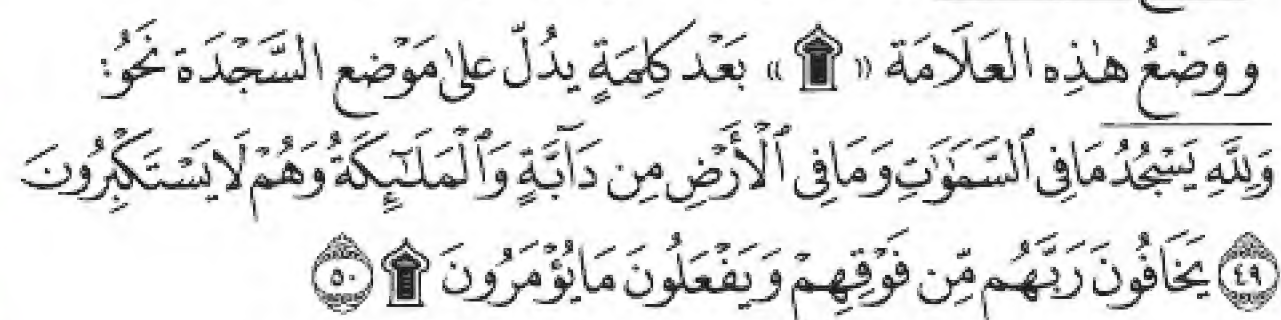 ووَضعُ هٰذِه العَلَامَة «۩» بَعْد كَلِمَةٍ يدُلّ علىٰ مَوْضع السَّجْدَة نَحْوُ:
وَلِلَّهِ يَسْجُدُ مَا فِي ٱلسَّمَٰوَٰتِ وَمَا فِي ٱلْأَرْضِ مِن دَآبَّةٍ وَٱلْمَلَٰٓئِكَةُ وَهُمْ لَا يَسْتَكْبِرُونَ
۝٤٩ يَخَافُونَ رَبَّهُم مِّن فَوْقِهِمْ وَيَفْعَلُونَ مَا يُؤْمَرُونَ ۩ ۝٥٠